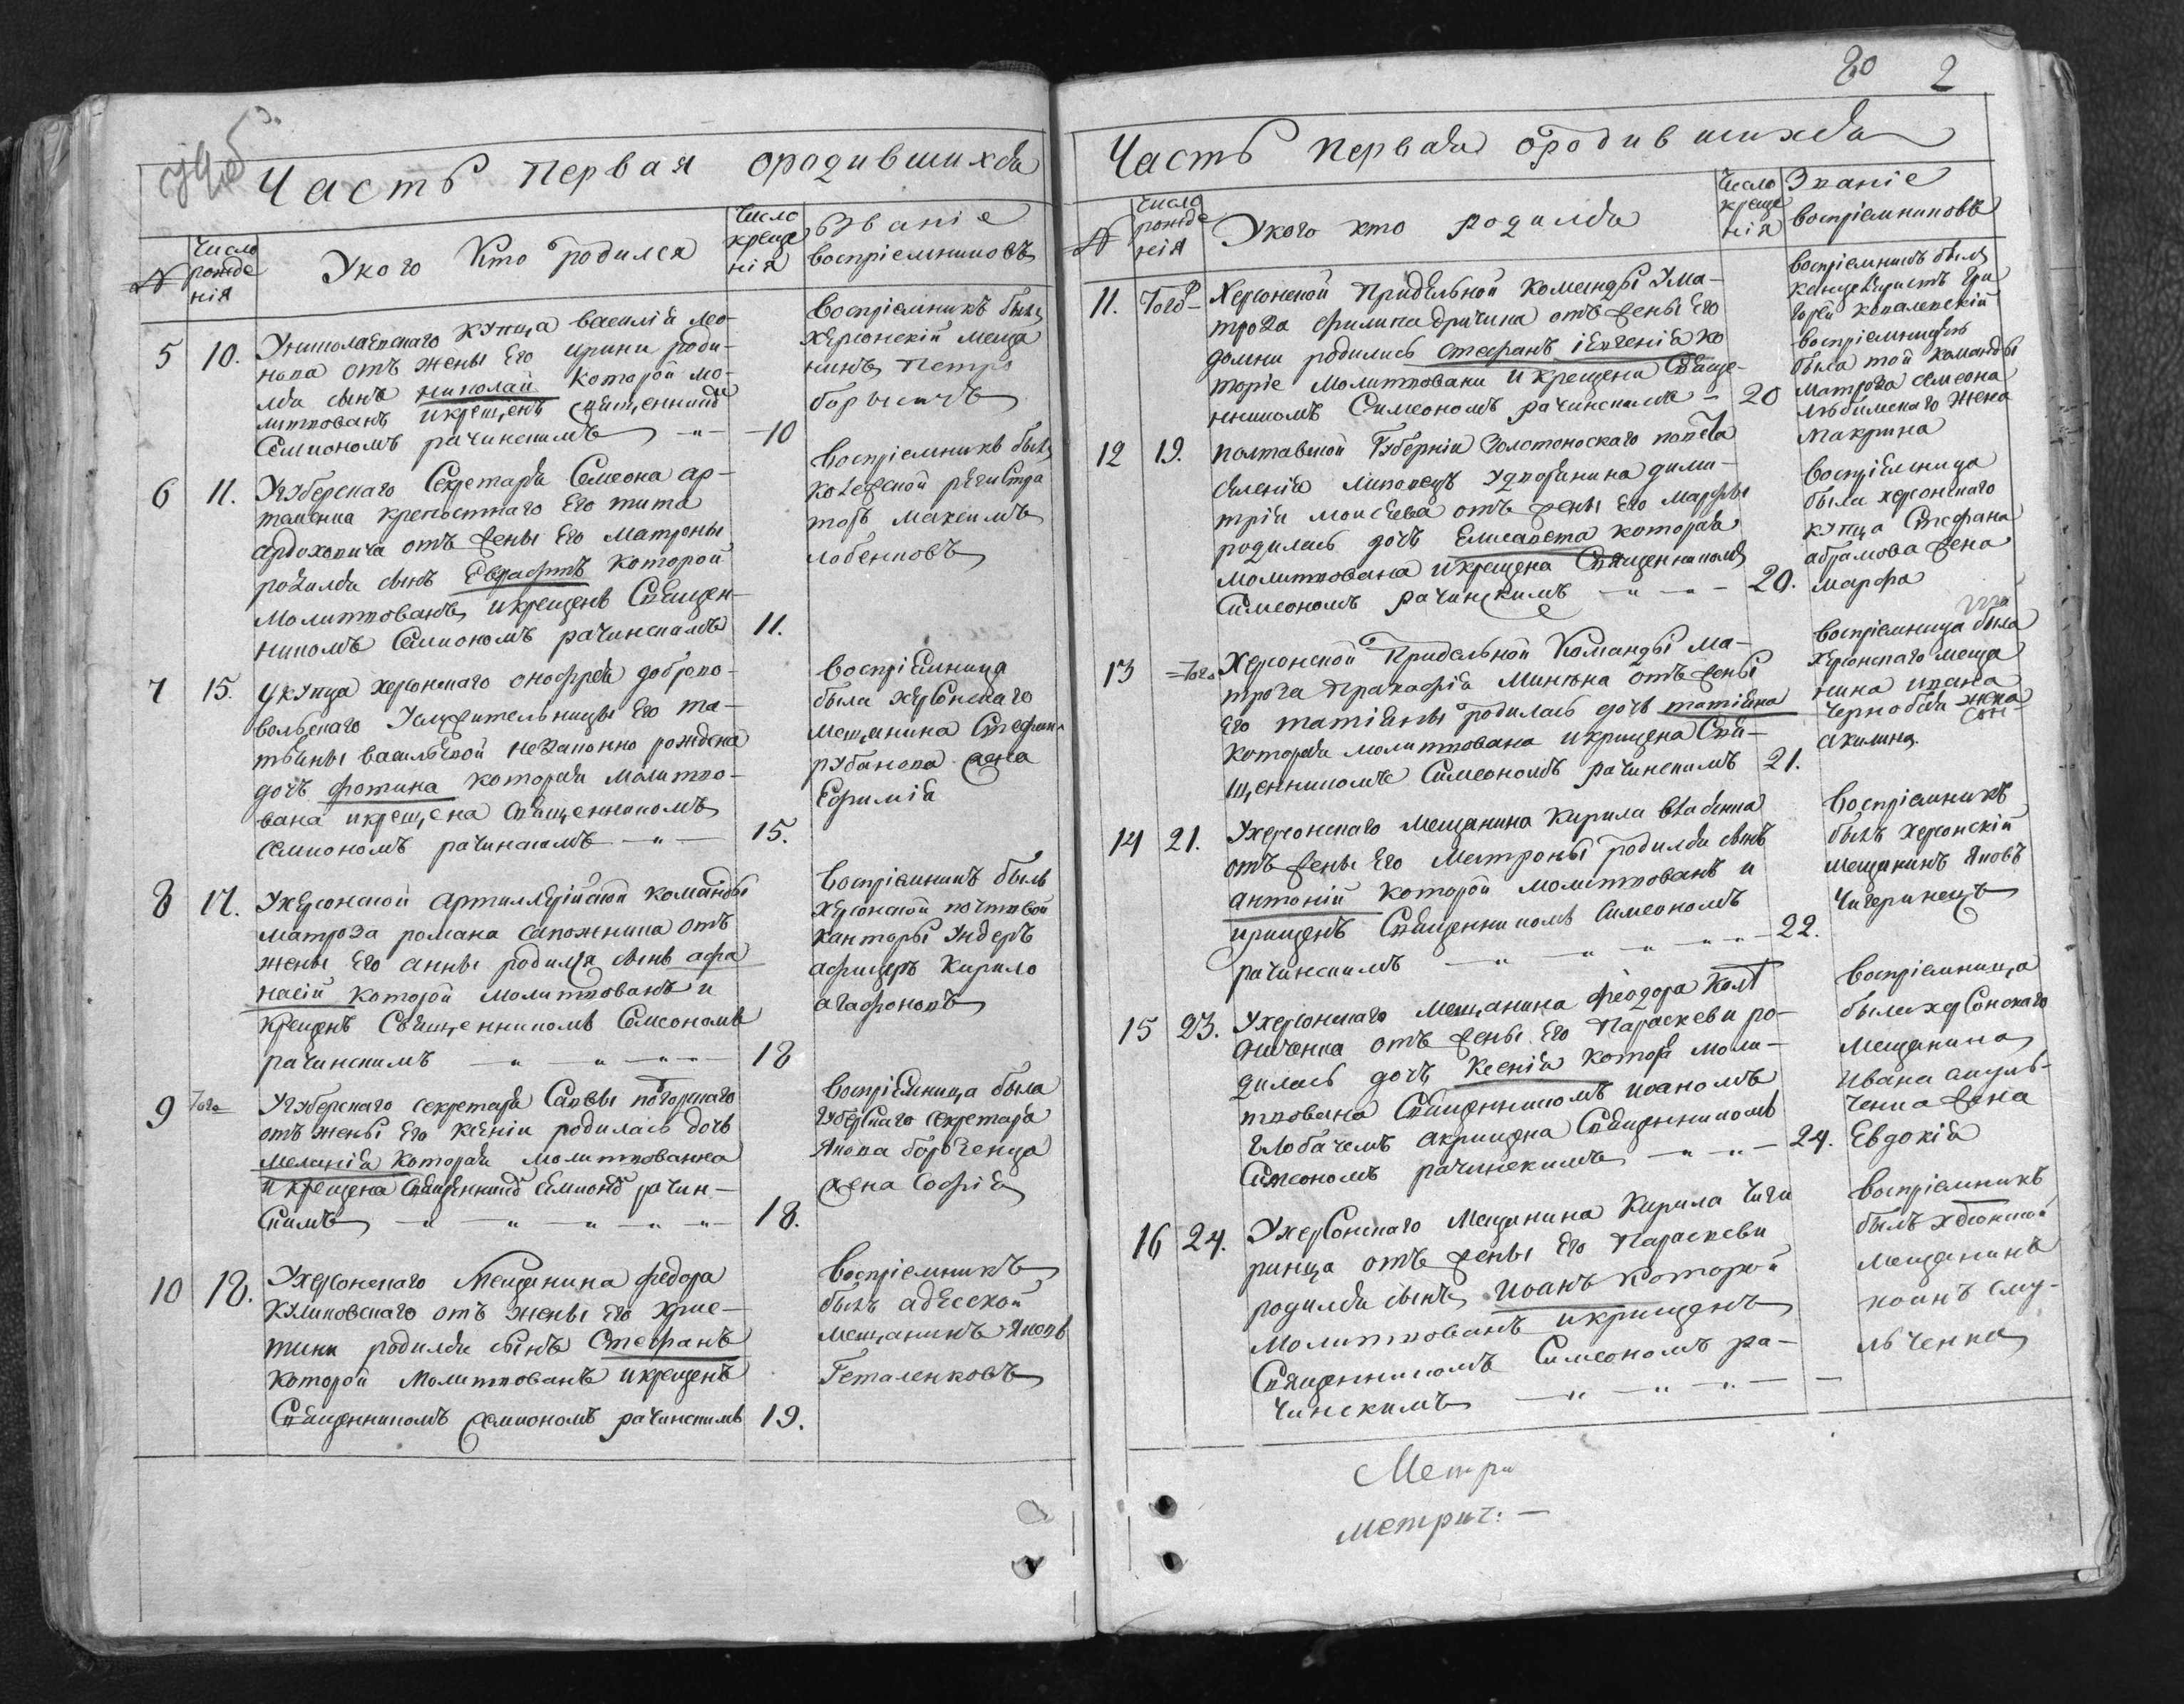 Часть первая ородившихся
№
число рожде нія
Укого Кто родился
число креще нія
Званіе воспріемниковъ
5 10.
Униколаевскаго купца василія ло-
нова отъ жены Его ирины роди-
лся сынъ николай которой мо-
литвованъ икрещенъ священнико
Семиономъ рачинскимъ 10
Воспріемникъ былъ
херсонскій меща
нинъ петръ
6 11.
Угуберскаго Секретаря Семеона ар-
крепостнаго Его тита
отъ жены Его Матроны
родился сынъ которой
Молитвованъ икрещенъ Священ-
никомъ Семиономъ рачинскимъ 11.
Воспріемникъ былъ
региСтра
торъ Максимъ
лобенковъ
7 15.
Укупца херсонскаго онофрея доброво-
вольскаго Его та-
тьяны васильевой незаконно рождена
дочь фотина которая молитво-
вана икрещена Священникомъ
Семиономъ рачинскимъ 15.
Воспріемница
была херсонскаго
мещанина Стефана
рубанова жена
Ефимія
8 17.
Ухерсонской артиллерійской команды
матроза романа сапожника отъ
жены Его анны родился сынъ афа
насій которой молитвованъ и
крещенъ Священникомъ Семеономъ
рачинскимъ 18
Воспріемникъ былъ
херсонской почтовой
канторы ундеръ
афицеръ Кирило
агафоновъ
9 Того
Угуберскаго секретаря Саввы погорскаго
отъ жены Его ксеніи родилась дочь
меланія которая молитвованна
икрещена Священнико Семионо рачин-
скимъ 18.
Воспріемница была
губерскаго секретаря
Якова борченца
жена Софія
10 18.
Ухерсонскаго Мещанина федора
куликовскаго отъ жены Его хрис-
тины родился сынъ Стефанъ
которой молитвованъ икрещенъ
Священникомъ Семиономъ рачинскимъ 19.
Воспріемникъ
былъ адесской
мещанинъ Яковъ
Геталенковъ
80 2
Часть первая ородившихся
№
число рожде нія
Укого кто родился
число креще нія
Званіе воспріемниковъ
11. Того
Херсонской Придельной команды Ума-
троза филипа отъ жены Его
домни родились стефанъ іевгенія ко
торіе молитвовани икрещени Свяще-
нникомъ Симеономъ рачинскимъ 20
воспріемникъ былъ
канцеляристъ гри
горей ковалевскій
воспріемницею
была той команды
матроза семеона
любимскаго жена
макрина
12 19.
полтавской Губерніи Золотоноскаго повета
селенія липовецъ удворянина дими-
трія моисеева отъ жены Его марфы
родилась дочь Елисавета которая
молитвована икрещена Священникомъ
Симеономъ рачинскимъ 20.
воспріемница
была херсонскаго
купца Стефана
абрамова жена
марфа
13 Того
Херсонской Придельной Команды ма-
троза отъ жены
Его татіаны родилась дочь татіана
которая молитвована икрищена Свя-
щенникомъ Симеономъ рачинскимъ 21.
воспріемница была
херсонскаго меща
нина ивана
жена
акилина.
14 21.
Ухерсонскаго мещанина Кирила
отъ жены Его Матроны родился сынъ
антоній которой молитвованъ и
крищенъ Священникомъ Симеономъ
рачинскимъ 22.
воспріемникъ
былъ херсонскій
мещанинъ Яковъ
Чигеринецъ
15 23.
Ухерсонскаго мещанина феодора
отъ жены Его Параскеви ро-
дилась дочь Ксенія мола-
твована Священникомъ иоаномъ
акрищена Священникомъ
Симеономъ рачинскимъ 24.
воспріемница
была херСонскаго
мещанина
ивана
ченка жена
Евдокія
16 24.
УхерСонскаго Мещанина Кирила чиги
ринца отъ жены Его Параскеви
родился сынъ Иоанъ которой
молитвованъ икрищенъ
Священникомъ Симеономъ ра-
чинскимъ
воспріемникъ
былъ
мещанинъ
льченка
Метри
метрич: —